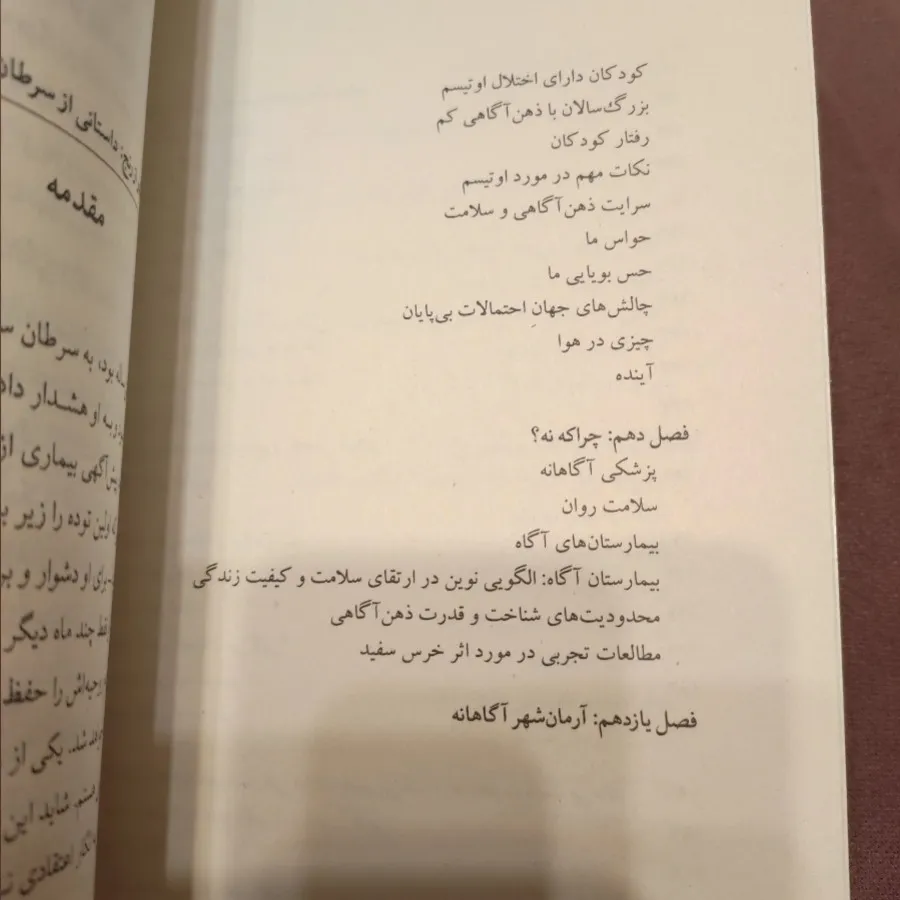 کودکان دارای اختلال اوتیسم
بزرگ‌سالان با ذهن‌آگاهی کم
رفتار کودکان
نکات مهم در مورد اوتیسم
سرایت ذهن‌آگاهی و سلامت
حواس ما
حس بویایی ما
چالش‌های جهانِ احتمالات بی‌پایان
چیزی در هوا
آینده
فصل دهم: چراکه نه؟
پزشکی آگاهانه
سلامت روان
بیمارستان‌های آگاه
بیمارستان آگاه: الگویی نوین در ارتقای سلامت و کیفیت زندگی
محدودیت‌های شناخت و قدرت ذهن‌آگاهی
مطالعات تجربی در مورد اثر خرس سفید
فصل یازدهم: آرمان‌شهر آگاهانه
داستانی از سرطان
مقدمه
بود، به سرطان
به او هشدار
آگهی بیماری از
اولین توده را زیر
برای او دشوار و
چند ماه دیگر
را حفظ
شد. یکی از
شاید این
اعتقادی